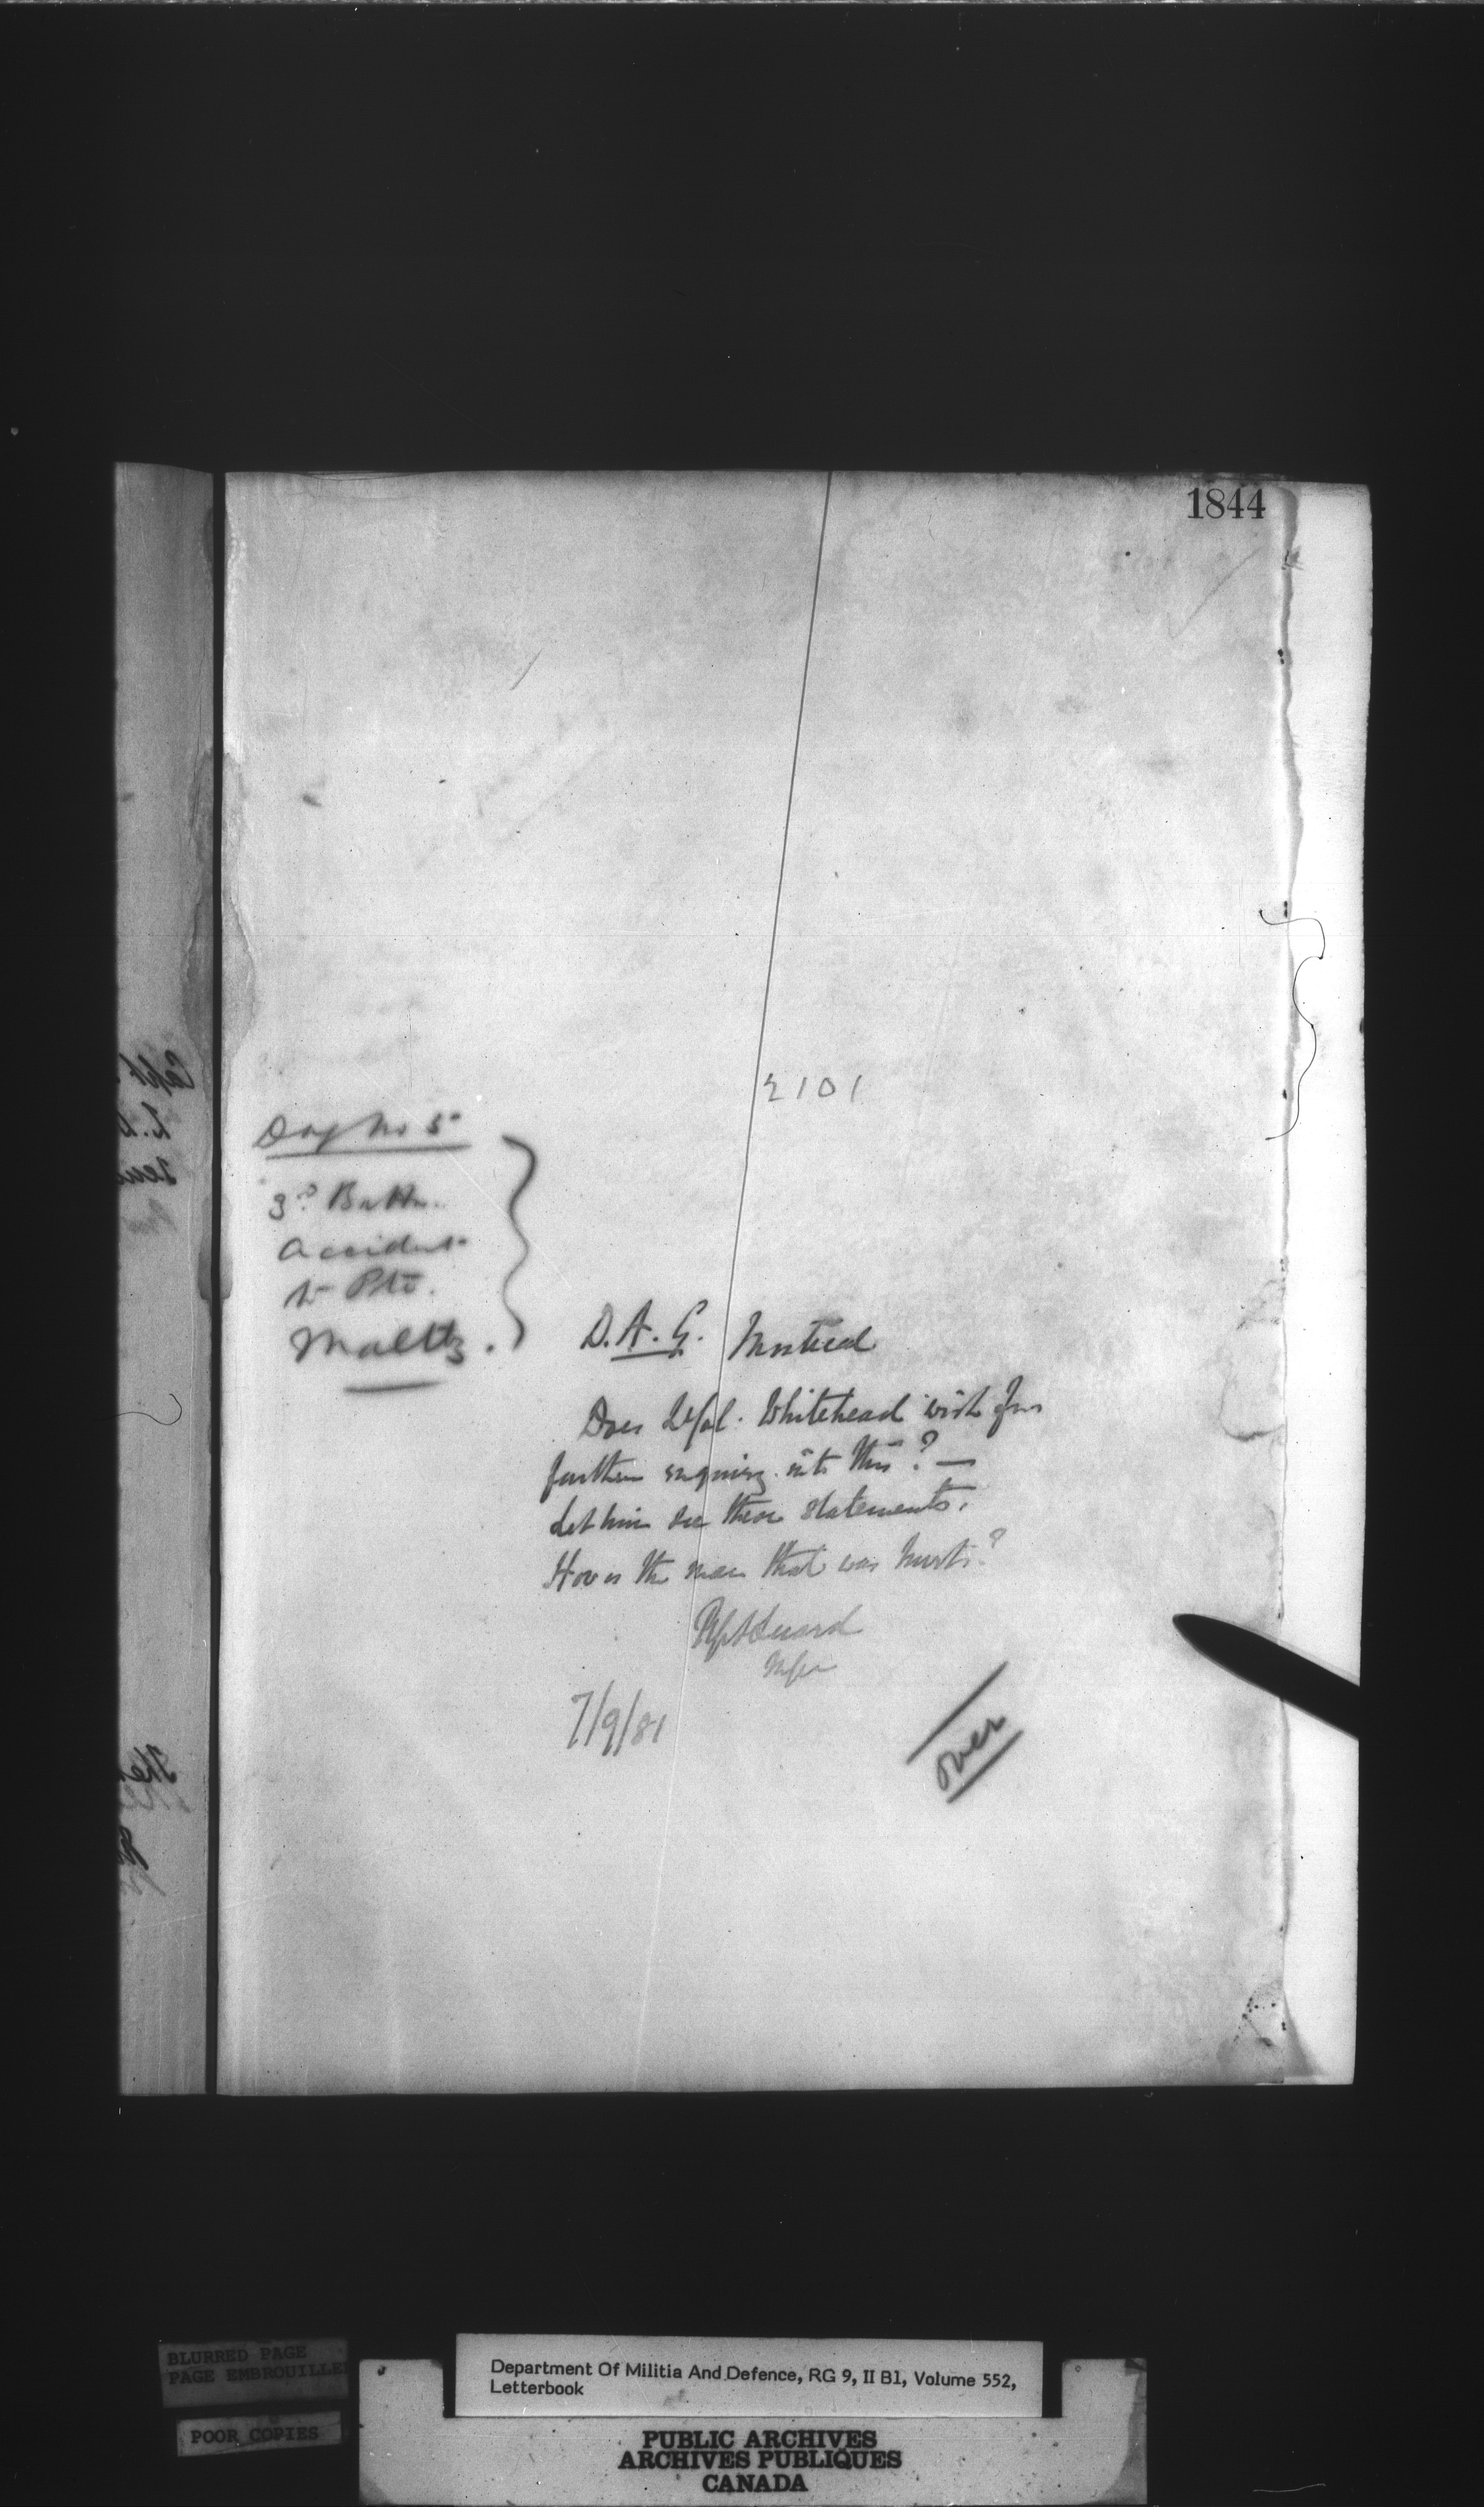 1844
2101
No 5
3d Battn.
Accident
to Pte.
Maltz.
D.A.G. Montreal
Does Lt Col. Whitehead wish for
further enquiry into this? —
Let him see these statements.
How is the man that was hurt?
7/9/81
over
BLURRED PAGE
PAGE EMBROUILLEE
POOR COPIES
Department Of Militia And Defence, RG 9, II B1, Volume 552,
Letterbook
PUBLIC ARCHIVES
ARCHIVES PUBLIQUES
CANADA